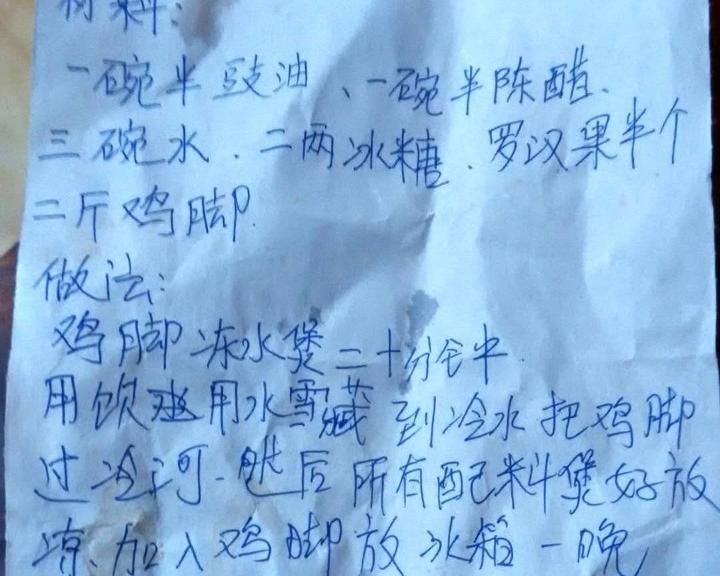 材料:
一碗半豉油、一碗半陈醋、
三碗水、二两冰糖、罗汉果半个
二斤鸡脚.
做法:
鸡脚冻水煲二十分钟.
用饮用水雪藏到冷水把鸡脚
过冷河.然后所有配料煲好放
凉、加入鸡脚放冰箱一晚